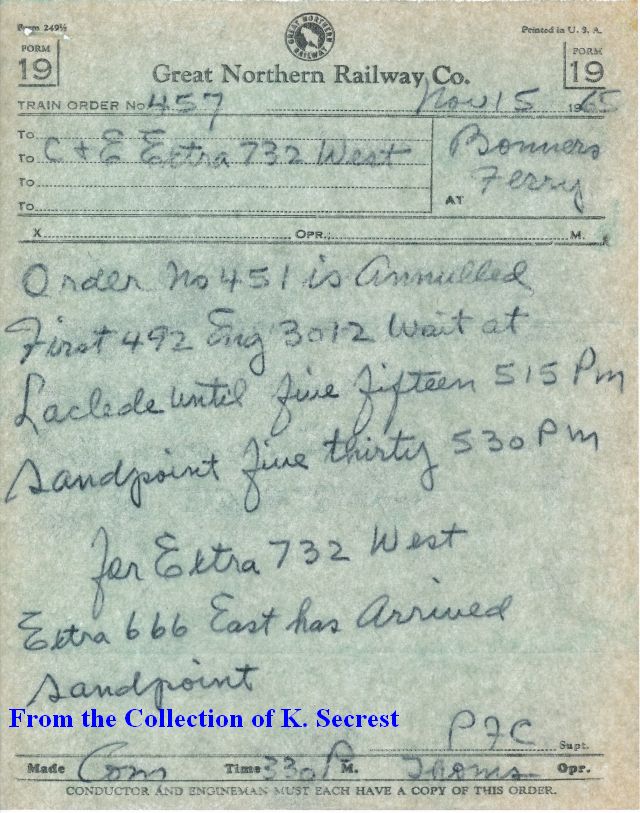 Form 249½
Printed in U. S. A.
GREAT NORTHERN RAILWAY
FORM 19
FORM 19
Great Northern Railway Co.
TRAIN ORDER No 457 Nov 15 1965
To
To C + E Extra 732 West
To
To
AT Bonners Ferry
X OPR.: M.
Order No 451 is Annulled
First 492 Eng 3012 Wait at
Laclede until five fifteen 515 Pm
Sandpoint five thirty 530 Pm
for Extra 732 West
Extra 666 East has Arrived
Sandpoint
From the Collection of K. Secrest
PFC Supt.
Made Com Time 330 P M. Thoms Opr.
CONDUCTOR AND ENGINEMAN MUST EACH HAVE A COPY OF THIS ORDER.